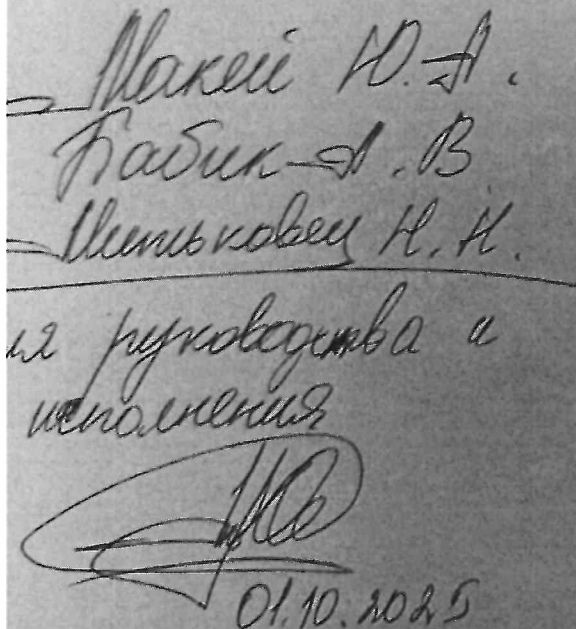 Макей Ю.А.
Бабик А.В
Митьковец Н.Н.
ля руководства и
исполнения
01.10.2025